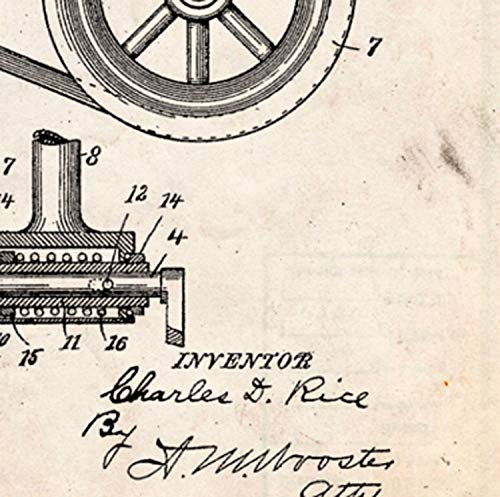 7
7
8
14
12
14
4
10
15
11
16
INVENTOR
Charles D. Rice
By
A. M. Wooster
Atty